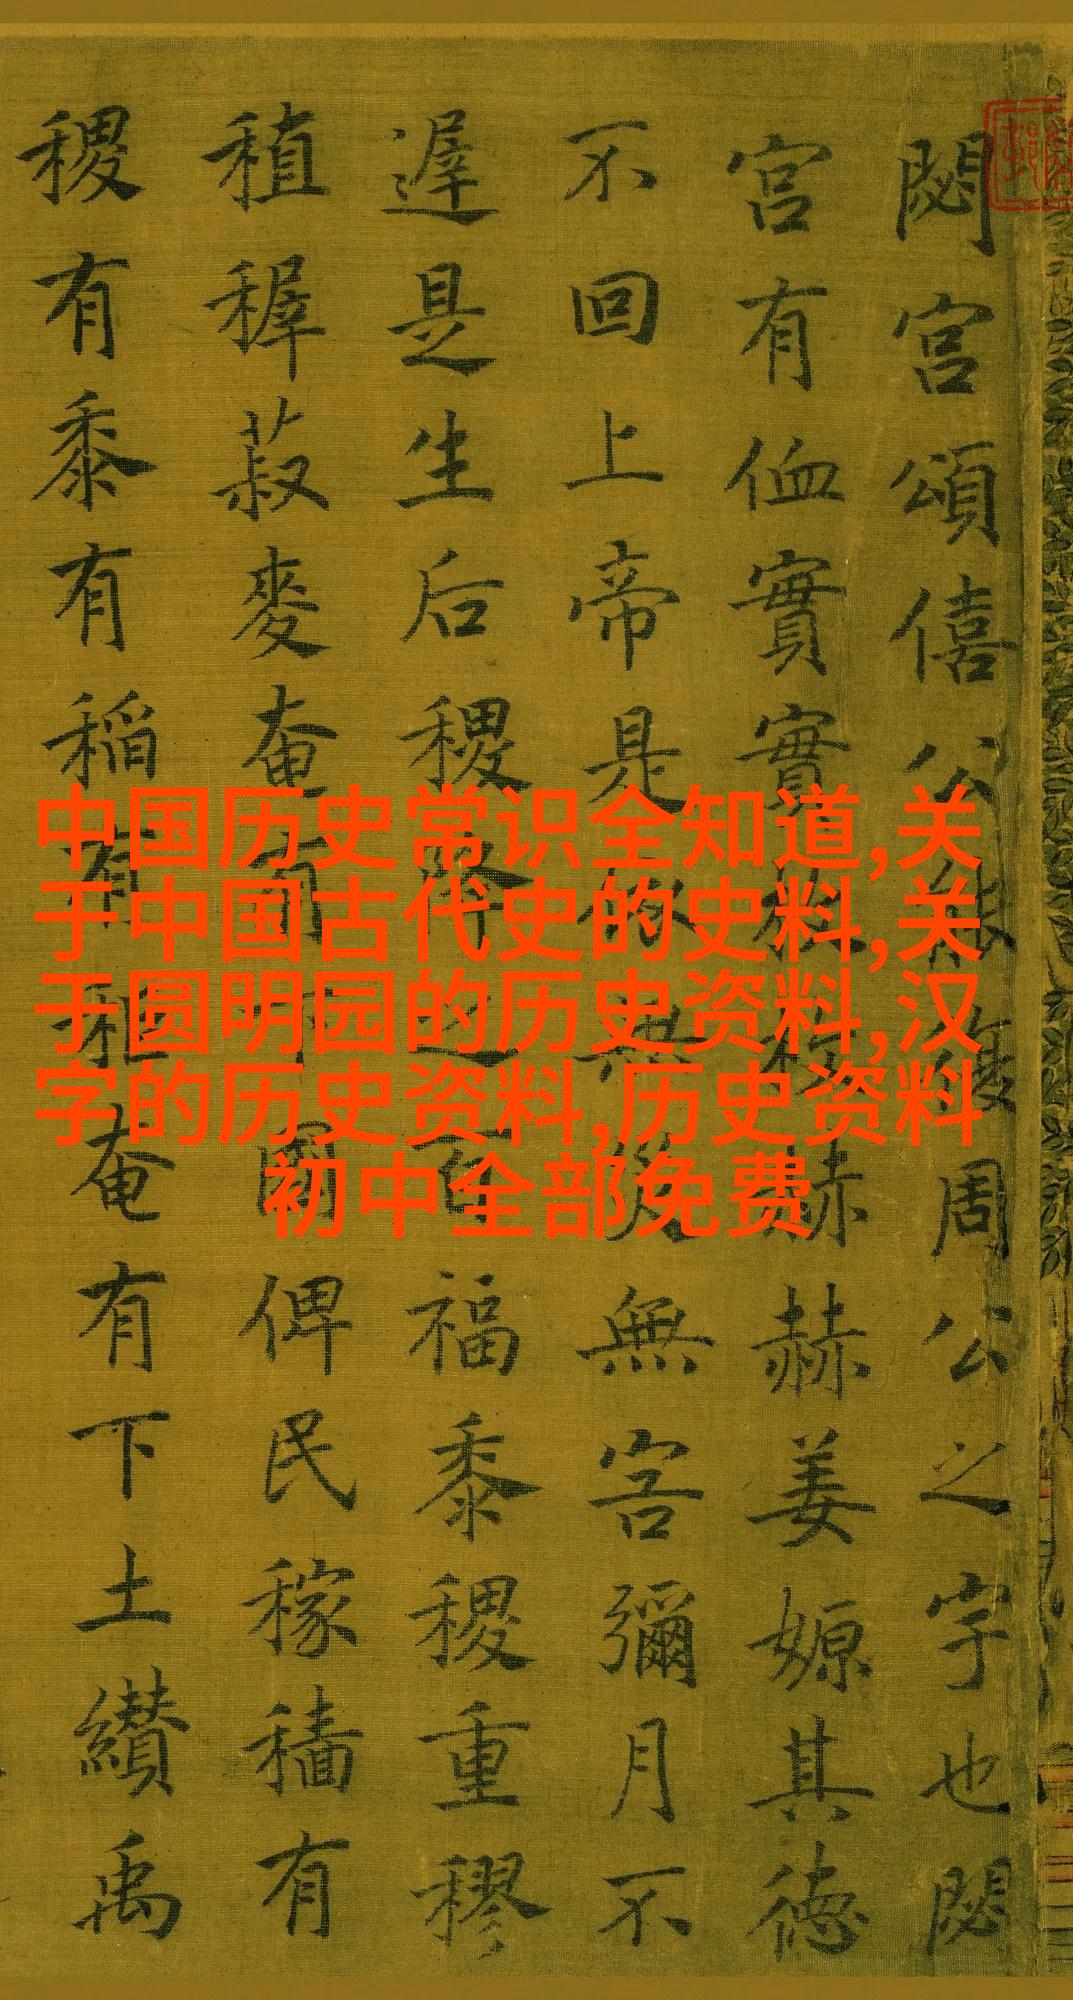 閟宮頌僖公能復周公之宇也閟
宮有侐實實枚枚赫赫姜嫄其德
不回上帝是依無災無害彌月不
遲是生后稷降之百福黍稷重穋
稙穉菽麥奄有下國俾民稼穡有
稷有黍有稻有秬奄有下土纘禹
中国历史常识全知道,关
于中国古代史的史料,关
于圆明园的历史资料,汉
字的历史资料,历史资料
初中全部免费